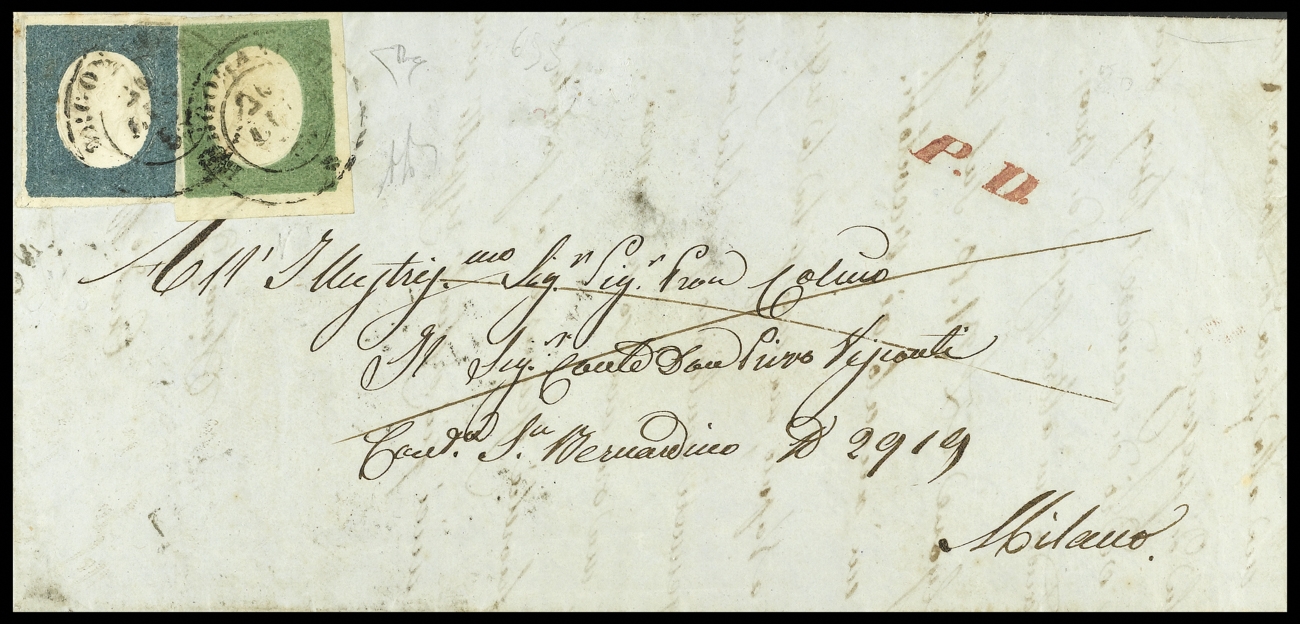 P. D.
All' Illustris.mo Sig.r Sig.r Pron Colmo
Il Sig.r Conte Don Pirro Visconti
Cont.a S.n Bernardino N 2919
Milano.